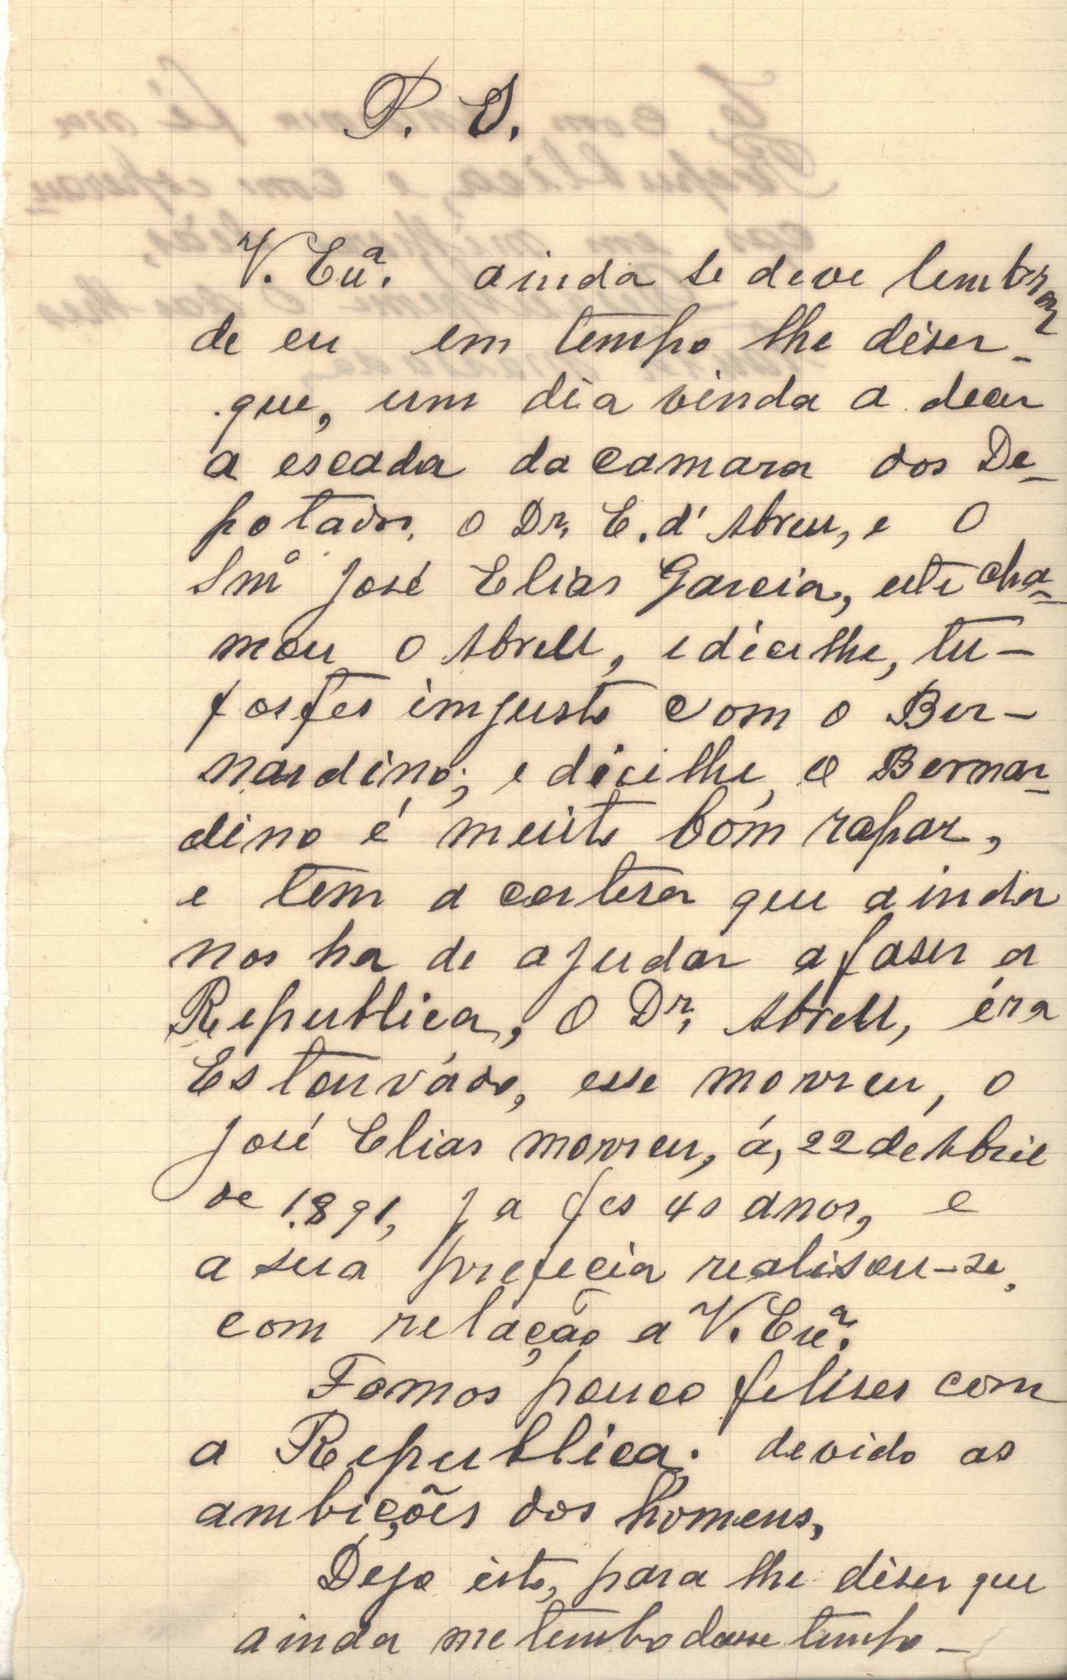 P. S.
V. Exª. ainda se deve lembrar
de eu em tempo lhe diser-
que, um dia vinda a decer
a escada da camara dos De-
potados, O Dr. E. d'Abreu, e O
Snrº José Elias Garcia, este cha-
mou o Abreu, e dice lhe, tu-
fostes imjusto com o Ber-
nardino; e dice lhe, O Bernar-
dino é muito bom rapaz,
e tem a certesa que ainda
nos ha de ajudar a faser a
Republica, O Dr. Abreu, éra
Estouvádo, esse morreu, o
José Elias morreu, á, 22 de Abril
de 1.891, ja fes 40 anos, e
a sua profecia realisou-se,
com relação a V. Exª.
Fomos pouco felises com
a Republica. devido as
ambições dos homens,
Digo isto, para lhe diser que
ainda me lembro desse tempo-